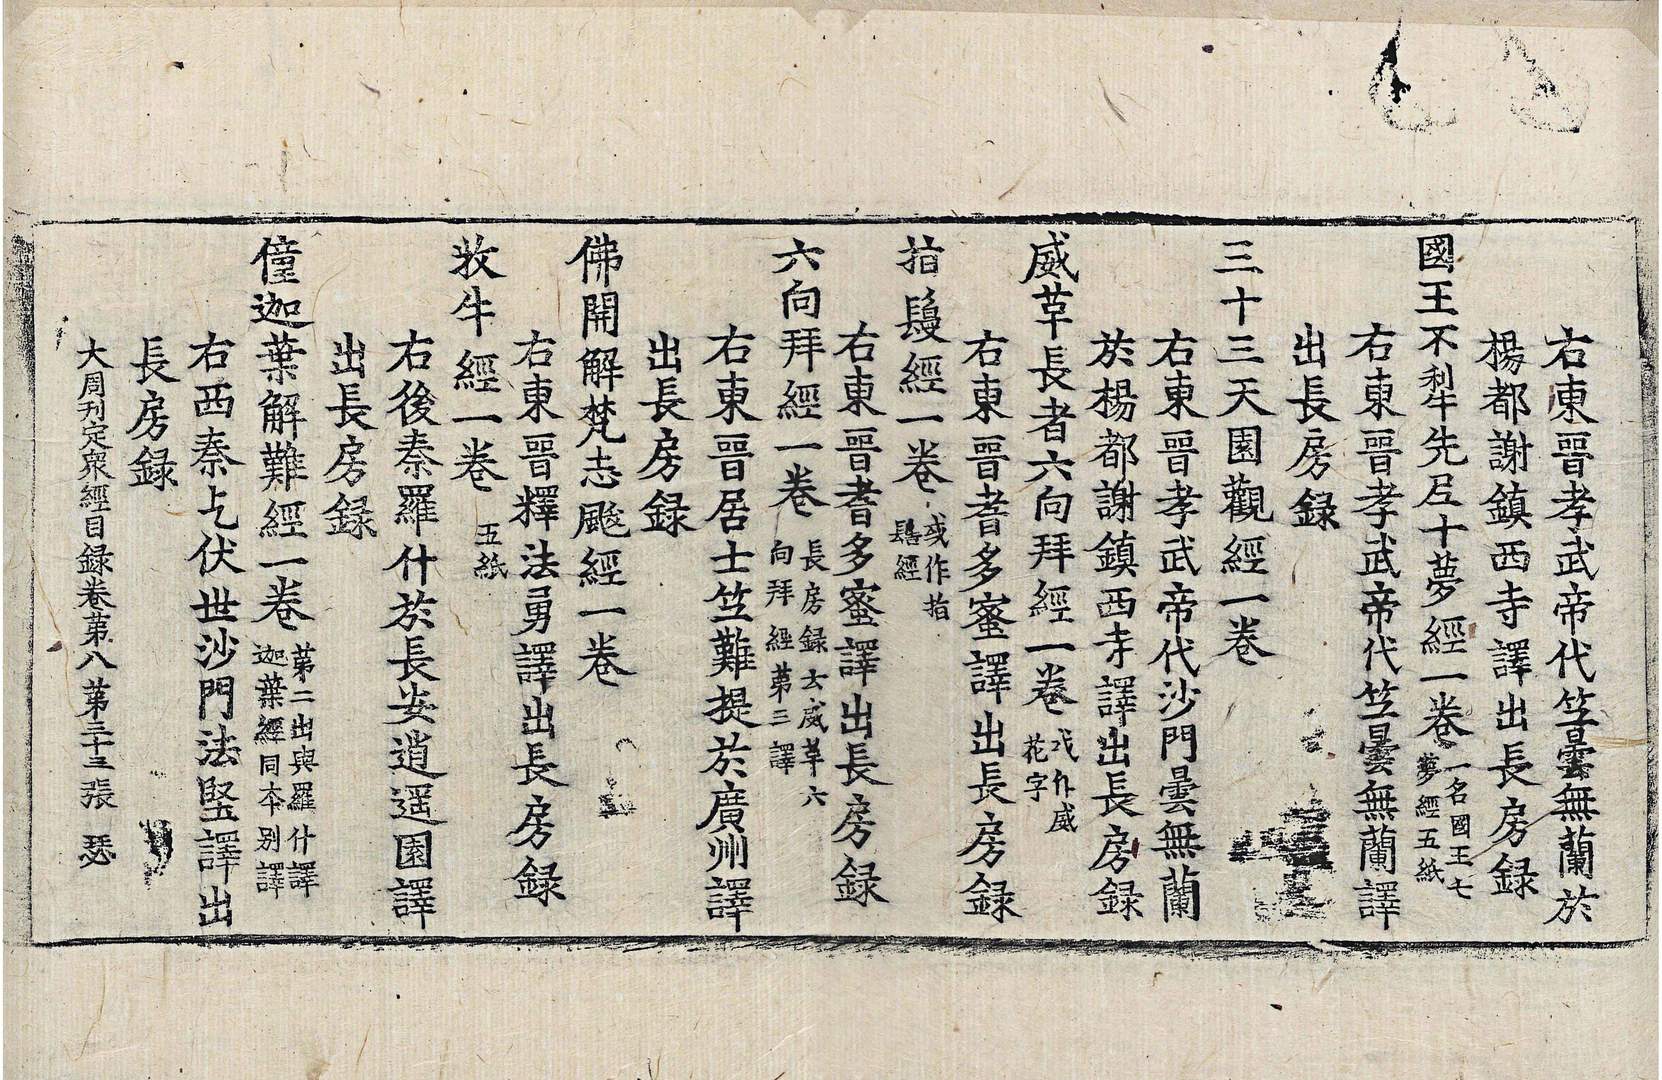 右東晉孝武帝代竺曇無蘭於
楊都謝鎮西寺譯出長房録
國王不犁先尼十夢經一卷一名國王七夢經五紙
右東晉孝武帝代竺曇無蘭譯
出長房録
三十三天園觀經一卷
右東晉孝武帝代沙門曇無蘭
於楊都謝鎮西寺譯出長房録
威草長者六向拜經一卷或作威花字
右東晉耆多蜜譯出長房録
指鬘經一卷或作指髻經
右東晉耆多蜜譯出長房録
六向拜經一卷長房録云威華六向拜經第三譯
右東晉居士竺難提於廣州譯
出長房録
佛開解梵志颰經一卷
右東晉釋法勇譯出長房録
牧牛經一卷五紙
右後秦羅什於長安逍遥園譯
出長房録
僮迦葉解難經一卷第二出與羅什譯迦葉經同夲别譯
右西秦乞伏世沙門法堅譯出
長房録
大周刊定衆經目録卷第八第三十三張 瑟